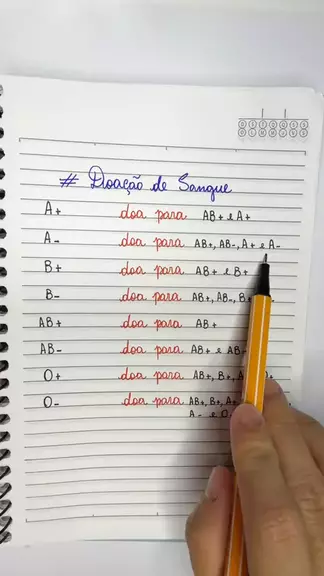 # Doação de Sangue
A+ doa para AB+ e A+
A- doa para AB+, AB-, A+ e A-
B+ doa para AB+ e B+
B- doa para AB+, AB-, B+
AB+ doa para AB+
AB- doa para AB+ e AB-
O+ doa para AB+, B+, A+
O- doa para AB+, B+, A+
A- e O-